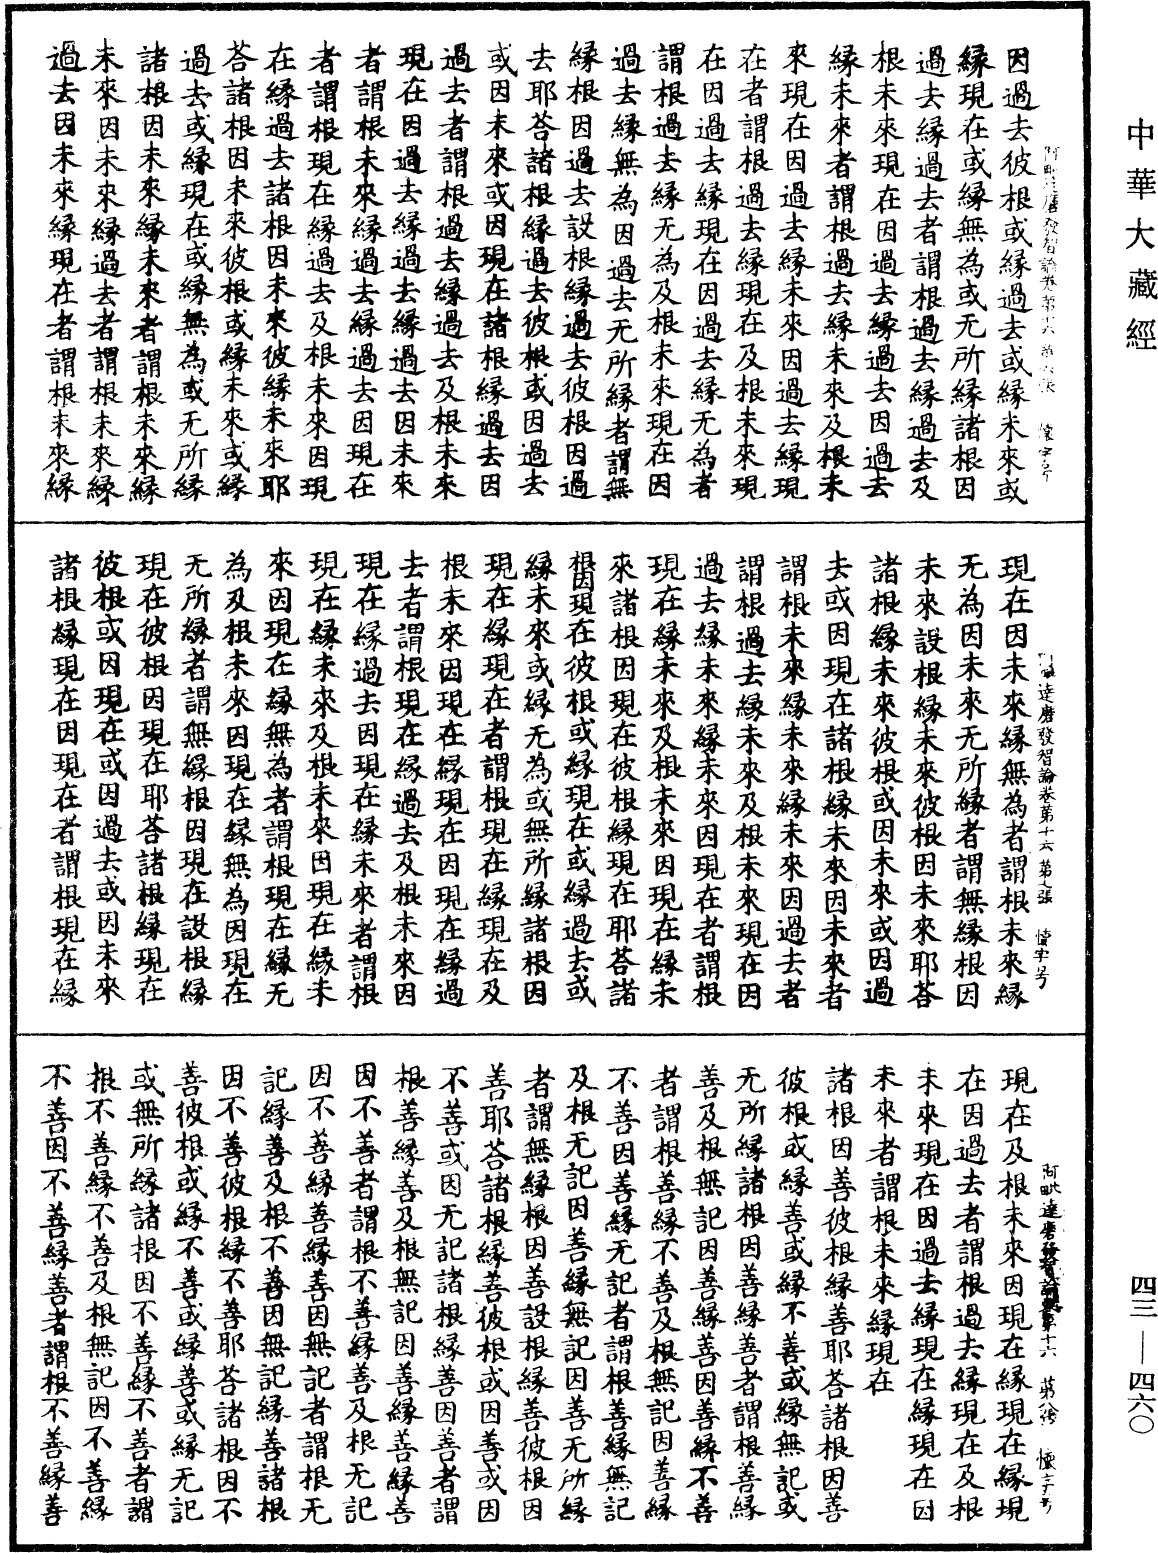 中華大藏經
因過去彼根或縁過去或縁未來或
縁現在或縁無為或无所縁諸根因
過去縁過去者謂根過去縁過去及
根未來現在因過去縁過去因過去
縁未來者謂根過去縁未來及根未
來現在因過去縁未來因過去縁現
在者謂根過去縁現在及根未來現
在因過去縁現在因過去縁无為者
謂根過去縁无為及根未來現在因
過去縁無為因過去无所縁者謂無
縁根因過去設根縁過去彼根因過
去耶荅諸根縁過去彼根或因過去
或因未來或因現在諸根縁過去因
過去者謂根過去縁過去及根未來
現在因過去縁過去縁過去因未來
者謂根未來縁過去縁過去因現在
者謂根現在縁過去及根未來因現
在縁過去諸根因未來彼縁未來耶
荅諸根因未來彼根或縁未來或縁
過去或縁現在或縁無為或无所縁
諸根因未來縁未來者謂根未來縁
未來因未來縁過去者謂根未來縁
過去因未來縁現在者謂根未來縁
達磨發智論卷第十六 第七張
現在因未來縁無為者謂根未來縁
无為因未來无所縁者謂無縁根因
未來設根縁未來彼根因未來耶荅
諸根縁未來彼根或因未來或因過
去或因現在諸根縁未來因未來者
謂根未來縁未來縁未來因過去者
謂根過去縁未來及根未來現在因
過去縁未來縁未來因現在者謂根
現在縁未來及根未來因現在縁未
來諸根因現在彼根縁現在耶荅諸
根因現在彼根或縁現在或縁過去或
縁未來或縁无為或無所縁諸根因
現在縁現在者謂根現在縁現在及
根未來因現在縁現在因現在縁過
去者謂根現在縁過去及根未來因
現在縁過去因現在縁未來者謂根
現在縁未來及根未來因現在縁未
來因現在縁無為者謂根現在縁无
為及根未來因現在縁無為因現在
无所縁者謂無縁根因現在設根縁
現在彼根因現在耶荅諸根縁現在
彼根或因現在或因過去或因未來
諸根縁現在因現在者謂根現在縁
現在及根未來因現在縁現在縁現
在因過去者謂根過去縁現在及根
未來現在因過去縁現在縁現在因
未來者謂根未來縁現在
諸根因善彼根縁善耶荅諸根因善
彼根或縁善或縁不善或縁無記或
无所縁諸根因善縁善者謂根善縁
善及根無記因善縁善因善縁不善
者謂根善縁不善及根無記因善縁
不善因善縁无記者謂根善縁無記
及根无記因善縁無記因善无所縁
者謂無縁根因善設根縁善彼根因
善耶荅諸根縁善彼根或因善或因
不善或因无記諸根縁善因善者謂
根善縁善及根無記因善縁善縁善
因不善者謂根不善縁善及根无記
因不善縁善縁善因無記者謂根无
記縁善及根不善因無記縁善諸根
因不善彼根縁不善耶荅諸根因不
善彼根或縁不善或縁善或縁无記
或無所縁諸根因不善縁不善者謂
根不善縁不善及根無記因不善縁
不善因不善縁善者謂根不善縁善
四三—四六〇